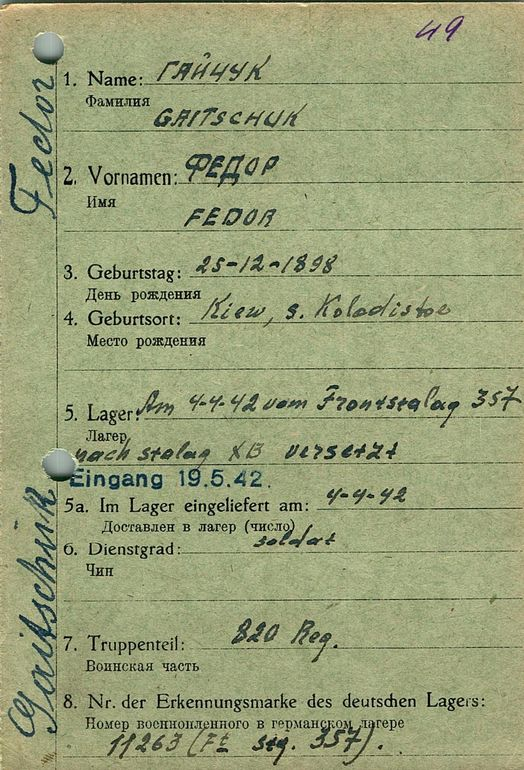 49
1. Name: ГАЙЧУК
Фамилия
GAITSCHUK
2. Vornamen: ФЕДОР
Имя
FEDOR
3. Geburtstag: 25-12-1898
День рождения
4. Geburtsort: Kiew, s. Koladistoe
Место рождения
5. Lager: Am 4-4-42 vom Frontstalag 357
Лагер
nach stalag XB versetzt
Eingang 19.5.42.
5a. Im Lager eingeliefert am: 4-4-42
Доставлен в лагер (число)
6. Dienstgrad: soldat
Чин
7. Truppenteil: 820 Reg.
Воинская часть
8. Nr. der Erkennungsmarke des deutschen Lagers:
Номер военнопленного в германском лагере
11263 (Ft stg. 357).
Gaitschuk Fedor